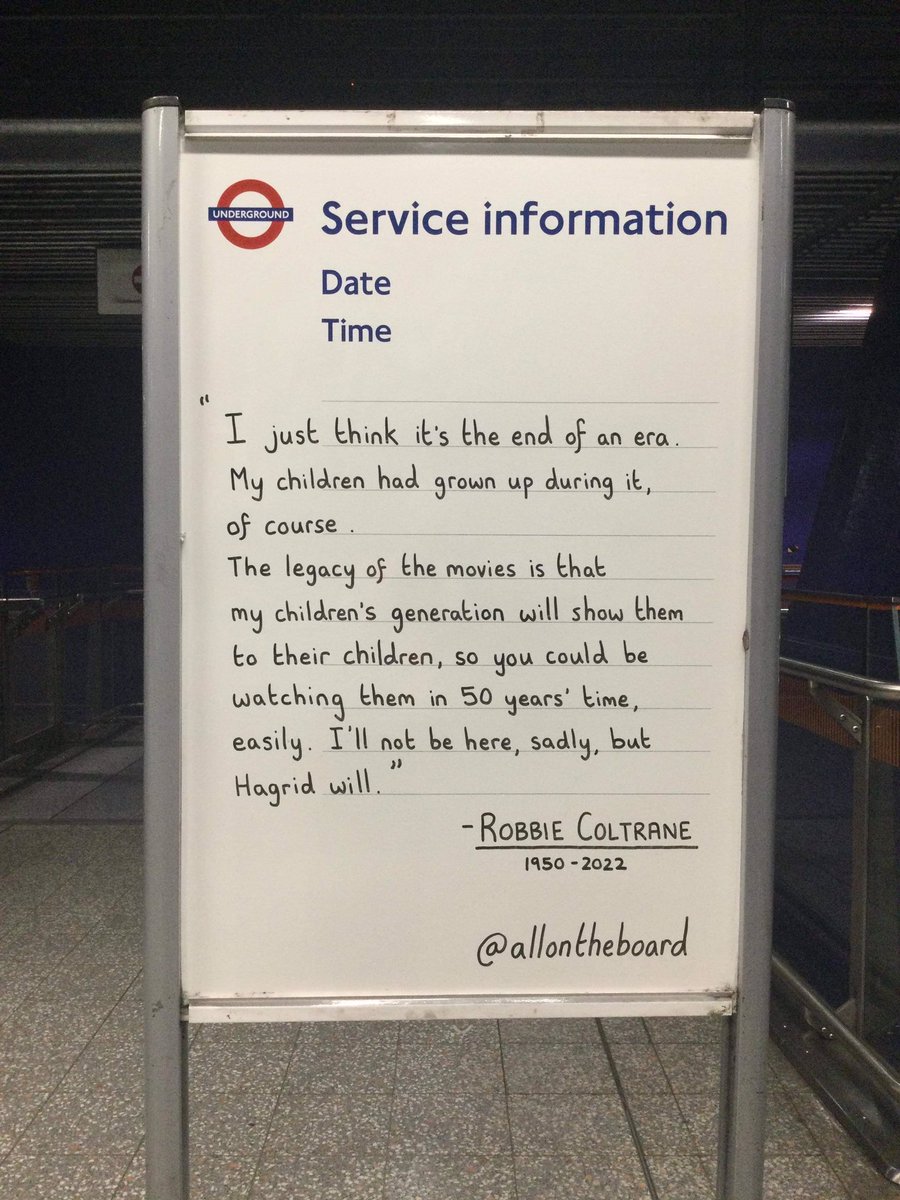 UNDERGROUND
Service information
Date
Time
"I just think it's the end of an era.
My children had grown up during it,
of course.
The legacy of the movies is that
my children's generation will show them
to their children, so you could be
watching them in 50 years' time,
easily. I'll not be here, sadly, but
Hagrid will."
- ROBBIE COLTRANE
1950-2022
@allontheboard